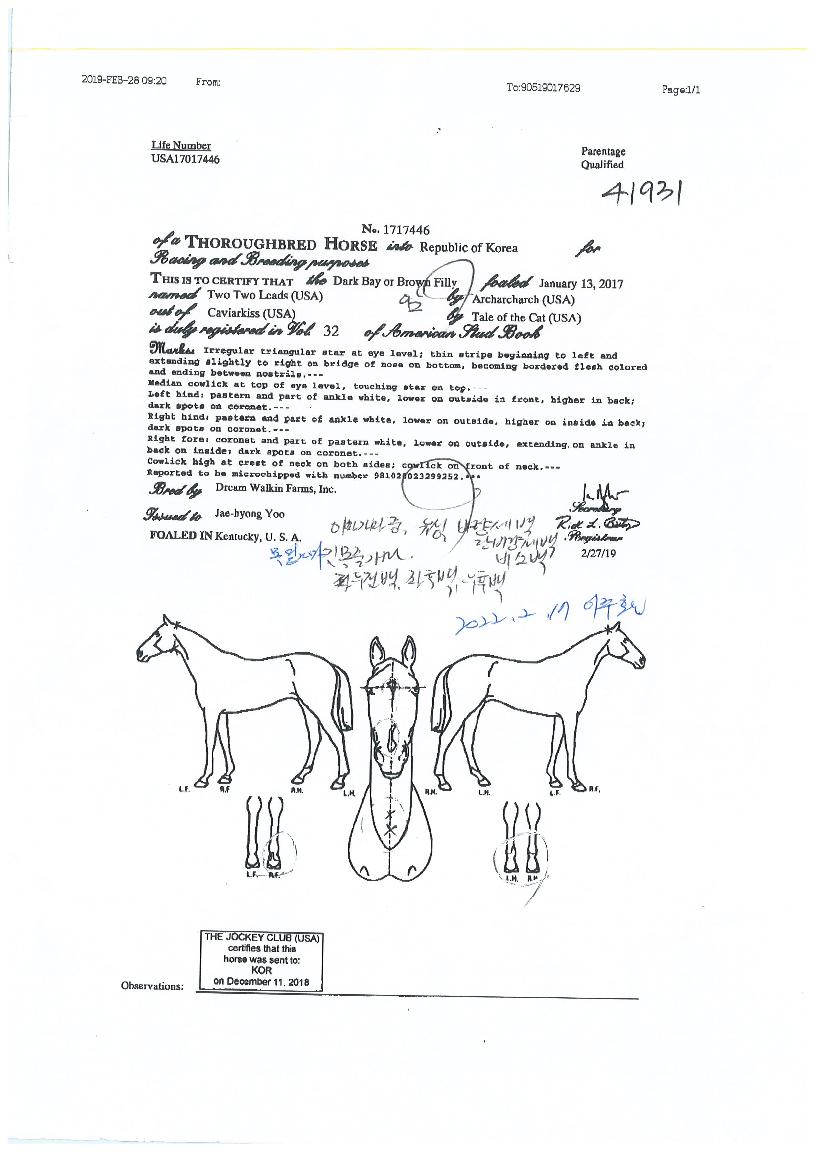 2019-FEB-28 09:20 From: To:90519017629 Page:1/1
Life Number
USA17017446
Parentage
Qualified
41931
No. 1717446
of a THOROUGHBRED HORSE into Republic of Korea for
Racing and Breeding purposes
THIS IS TO CERTIFY THAT the Dark Bay or Brown Filly foaled January 13, 2017
named Two Two Leads (USA) by Archarcharch (USA)
out of Caviarkiss (USA) by Tale of the Cat (USA)
is duly registered in Vol. 32 of American Stud Book
Marks: Irregular triangular star at eye level; thin stripe beginning to left and
extending slightly to right on bridge of nose on bottom, becoming bordered flesh colored
and ending between nostrils.---
Median cowlick at top of eye level, touching star on top.---
Left hind: pastern and part of ankle white, lower on outside in front, higher in back;
dark spots on coronet.---
Right hind: pastern and part of ankle white, lower on outside, higher on inside in back;
dark spots on coronet.---
Right fore: coronet and part of pastern white, lower on outside, extending on ankle in
back on inside; dark spots on coronet.---
Cowlick high at crest of neck on both sides; cowlick on front of neck.---
Reported to be microchipped with number 981020023299252.---
Bred by Dream Walkin Farms, Inc.
Secretary
Issued to Jae-hyong Yoo
Registrar
FOALED IN Kentucky, U. S. A.
2/27/19
2022. 2. 17
L.F. R.F. R.H. L.H. R.H. L.H. L.F. R.F.
L.F. R.F. L.H. R.H.
THE JOCKEY CLUB (USA)
certifies that this
horse was sent to:
KOR
on December 11, 2018
Observations: